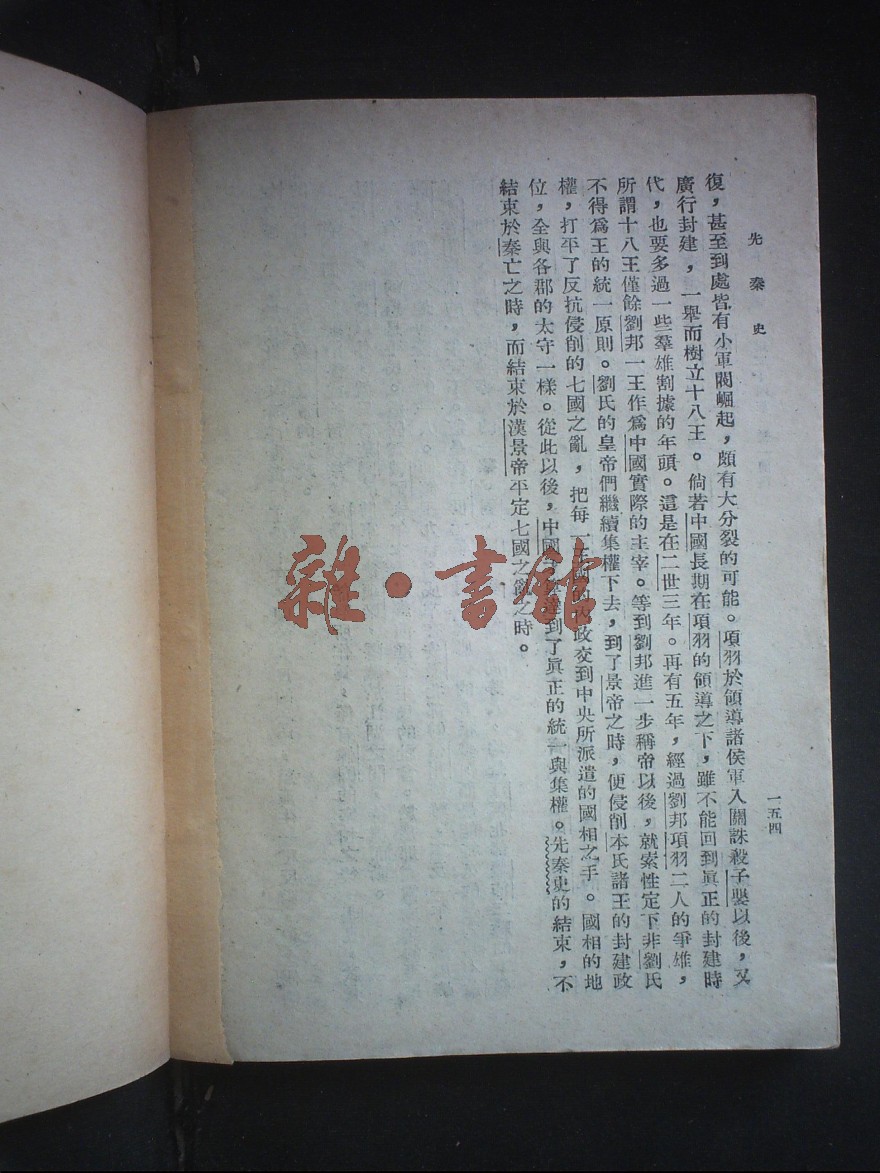 先秦史
一五四
復，甚至到處皆有小軍閥崛起，頗有大分裂的可能。項羽於領導諸侯軍入關誅殺子嬰以後，又
廣行封建，一舉而樹立十八王。倘若中國長期在項羽的領導之下，雖不能回到眞正的封建時
代，也要多過一些羣雄割據的年頭。這是在二世三年。再有五年，經過劉邦項羽二人的爭雄，
所謂十八王僅餘劉邦一王作爲中國實際的主宰。等到劉邦進一步稱帝以後，就索性定下非劉氏
不得爲王的統一原則。劉氏的皇帝們繼續集權下去，到了景帝之時，便侵削本氏諸王的封建政
權，打平了反抗侵削的七國之亂，把每一王國的大政交到中央所派遣的國相之手。國相的地
位，全與各郡的太守一樣。從此以後，中國達到了眞正的統一與集權。先秦史的結束，不
結束於秦亡之時，而結束於漢景帝平定七國之亂之時。
雜·書館